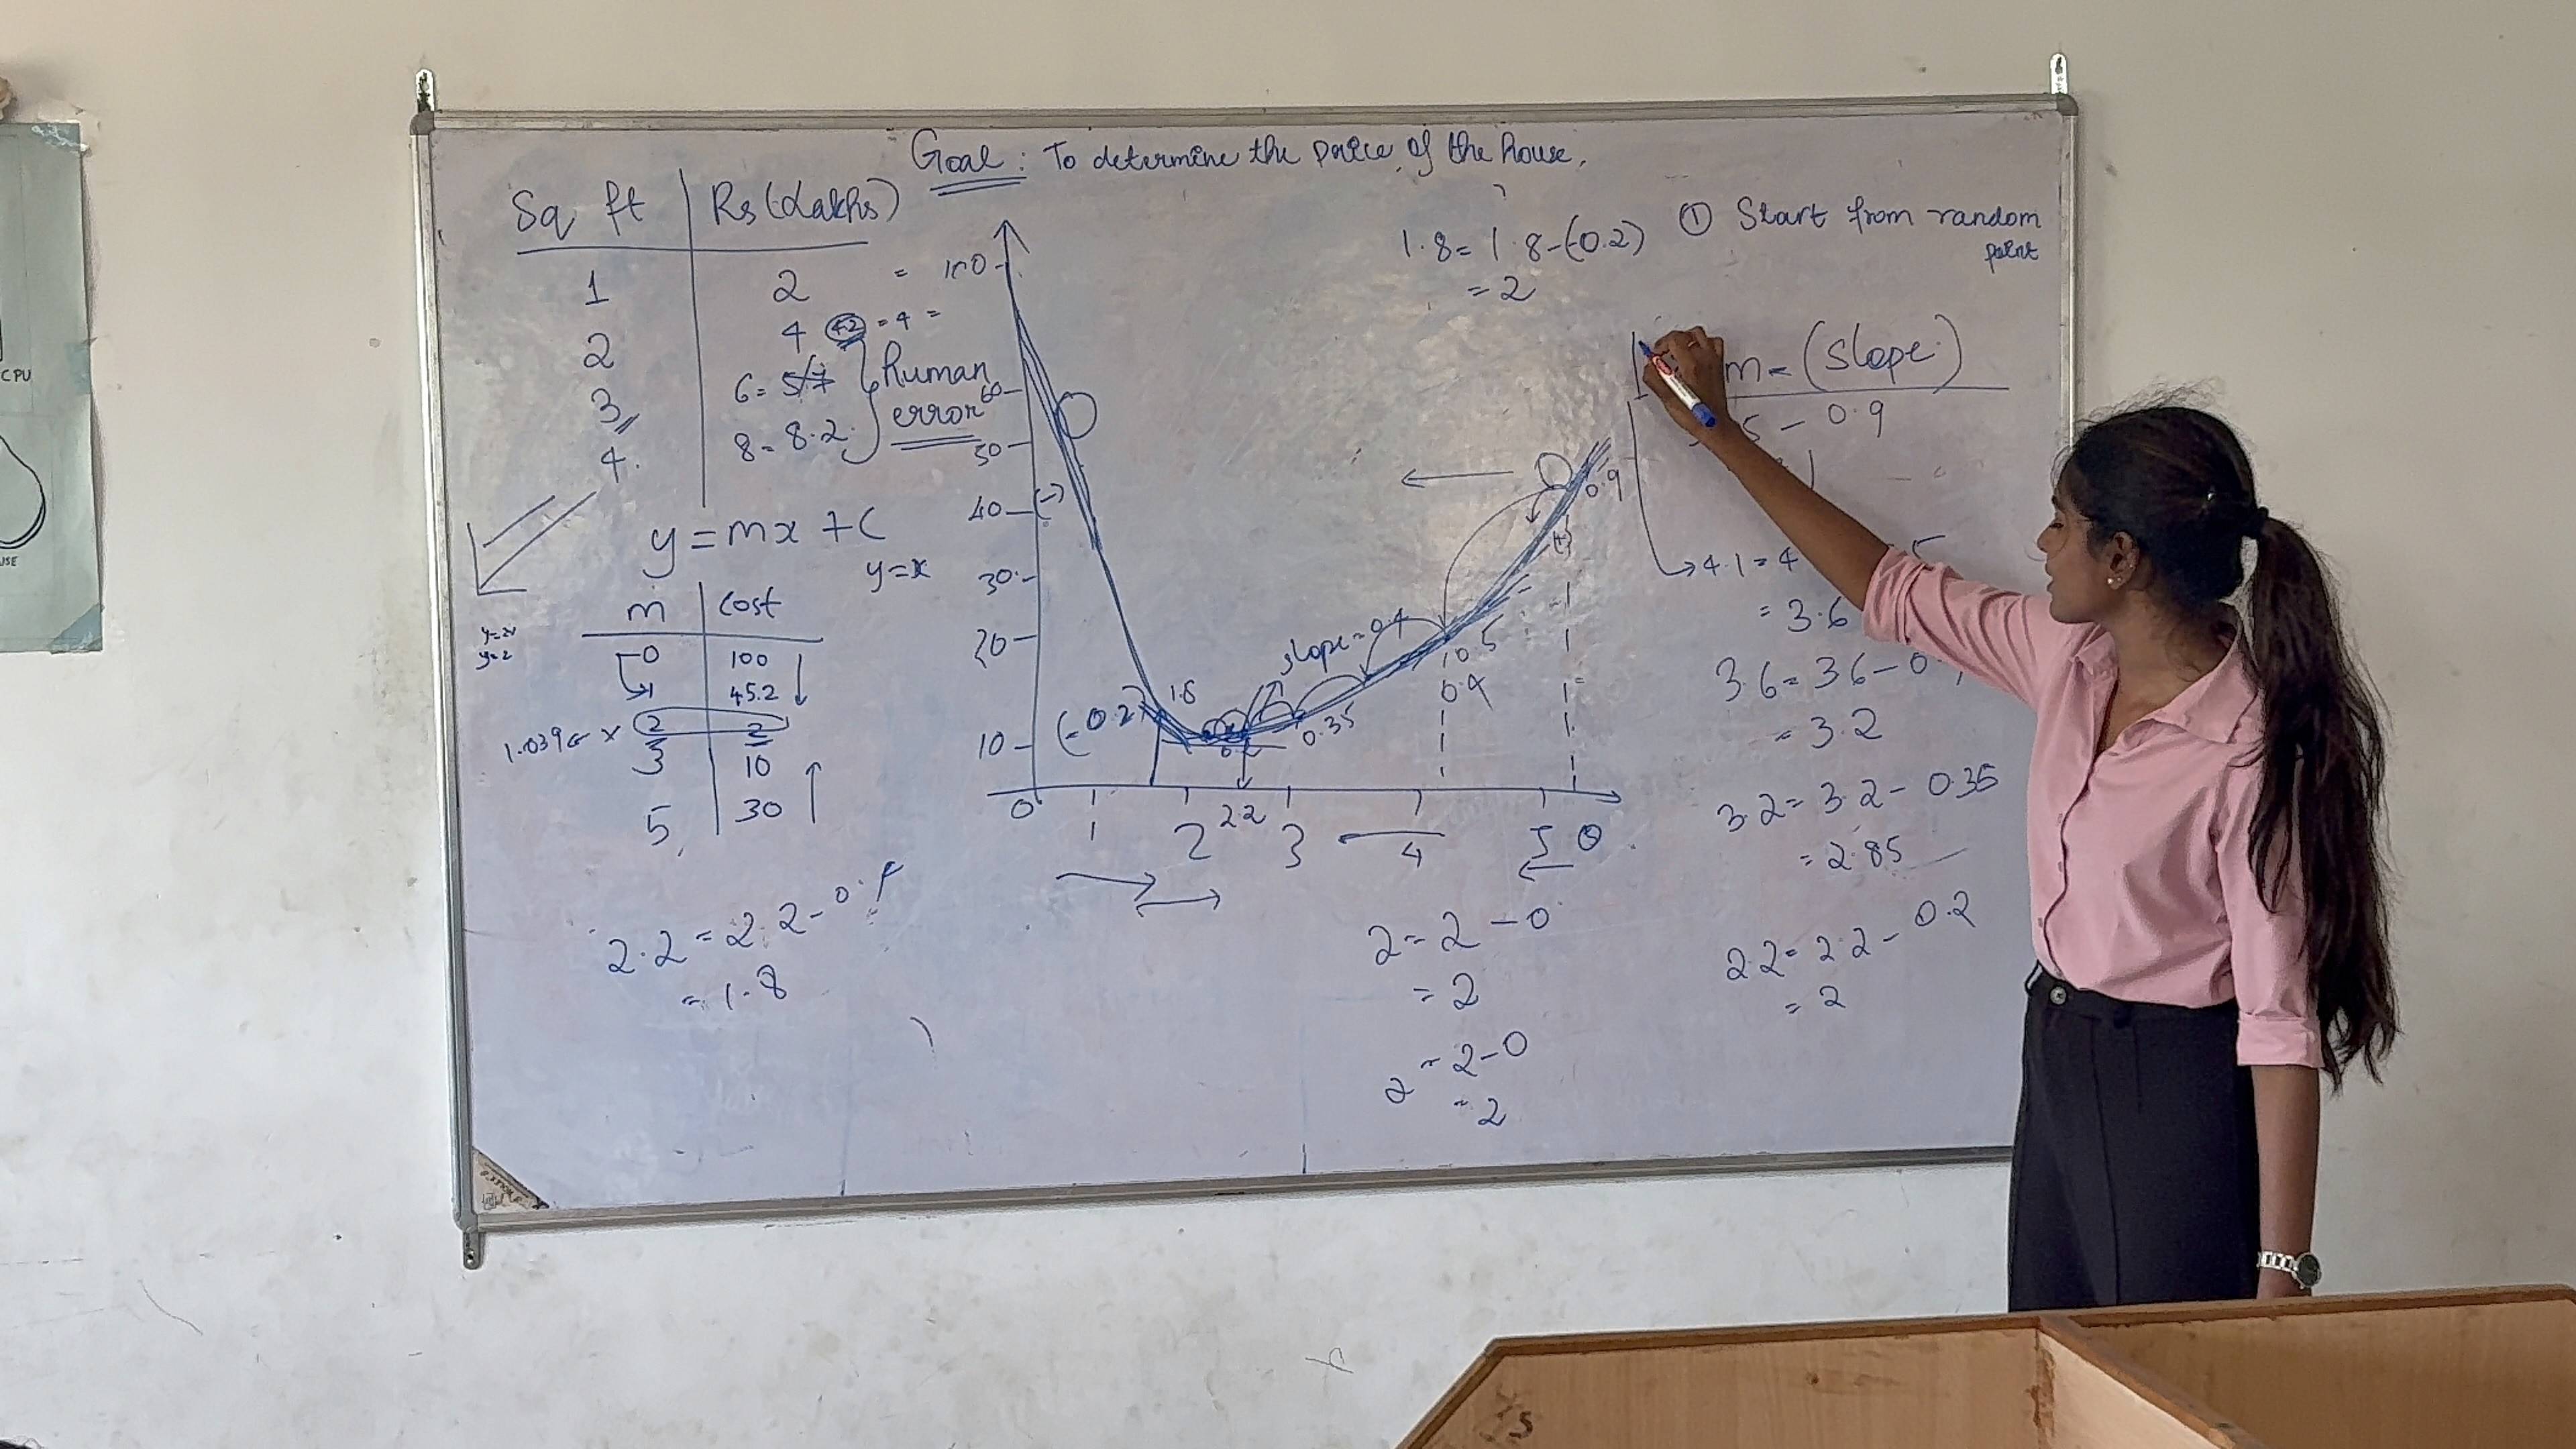 Goal: To determine the price of the house,
Sq ft | Rs (Lakhs)
1 2
2 4 4.2 = 4 =
3 6 = 5/7
4. 8 = 8.2
Human
error
y = mx + c
y = x
m | Cost
0 100
1 45.2
2 2
3 10
5 30
2.2 = 2.2 -
= 1.8
60
50
40 (-)
30
20
10
0 1 2 2.2 3 4 5
(-0.2) 1.8
0.2
0.35
slope = 0.4
0.5
0.4
0.9
(+)
2 = 2 - 0
= 2
2 = 2 - 0
= 2
1.8 = 1.8 - (-0.2)
= 2
① Start from random
point
m - (slope)
5 - 0.9
4.1 = 4
= 3.6
3.6 = 3.6 - 0.
= 3.2
3.2 = 3.2 - 0.35
= 2.85
2.2 = 2.2 - 0.2
= 2
CPU